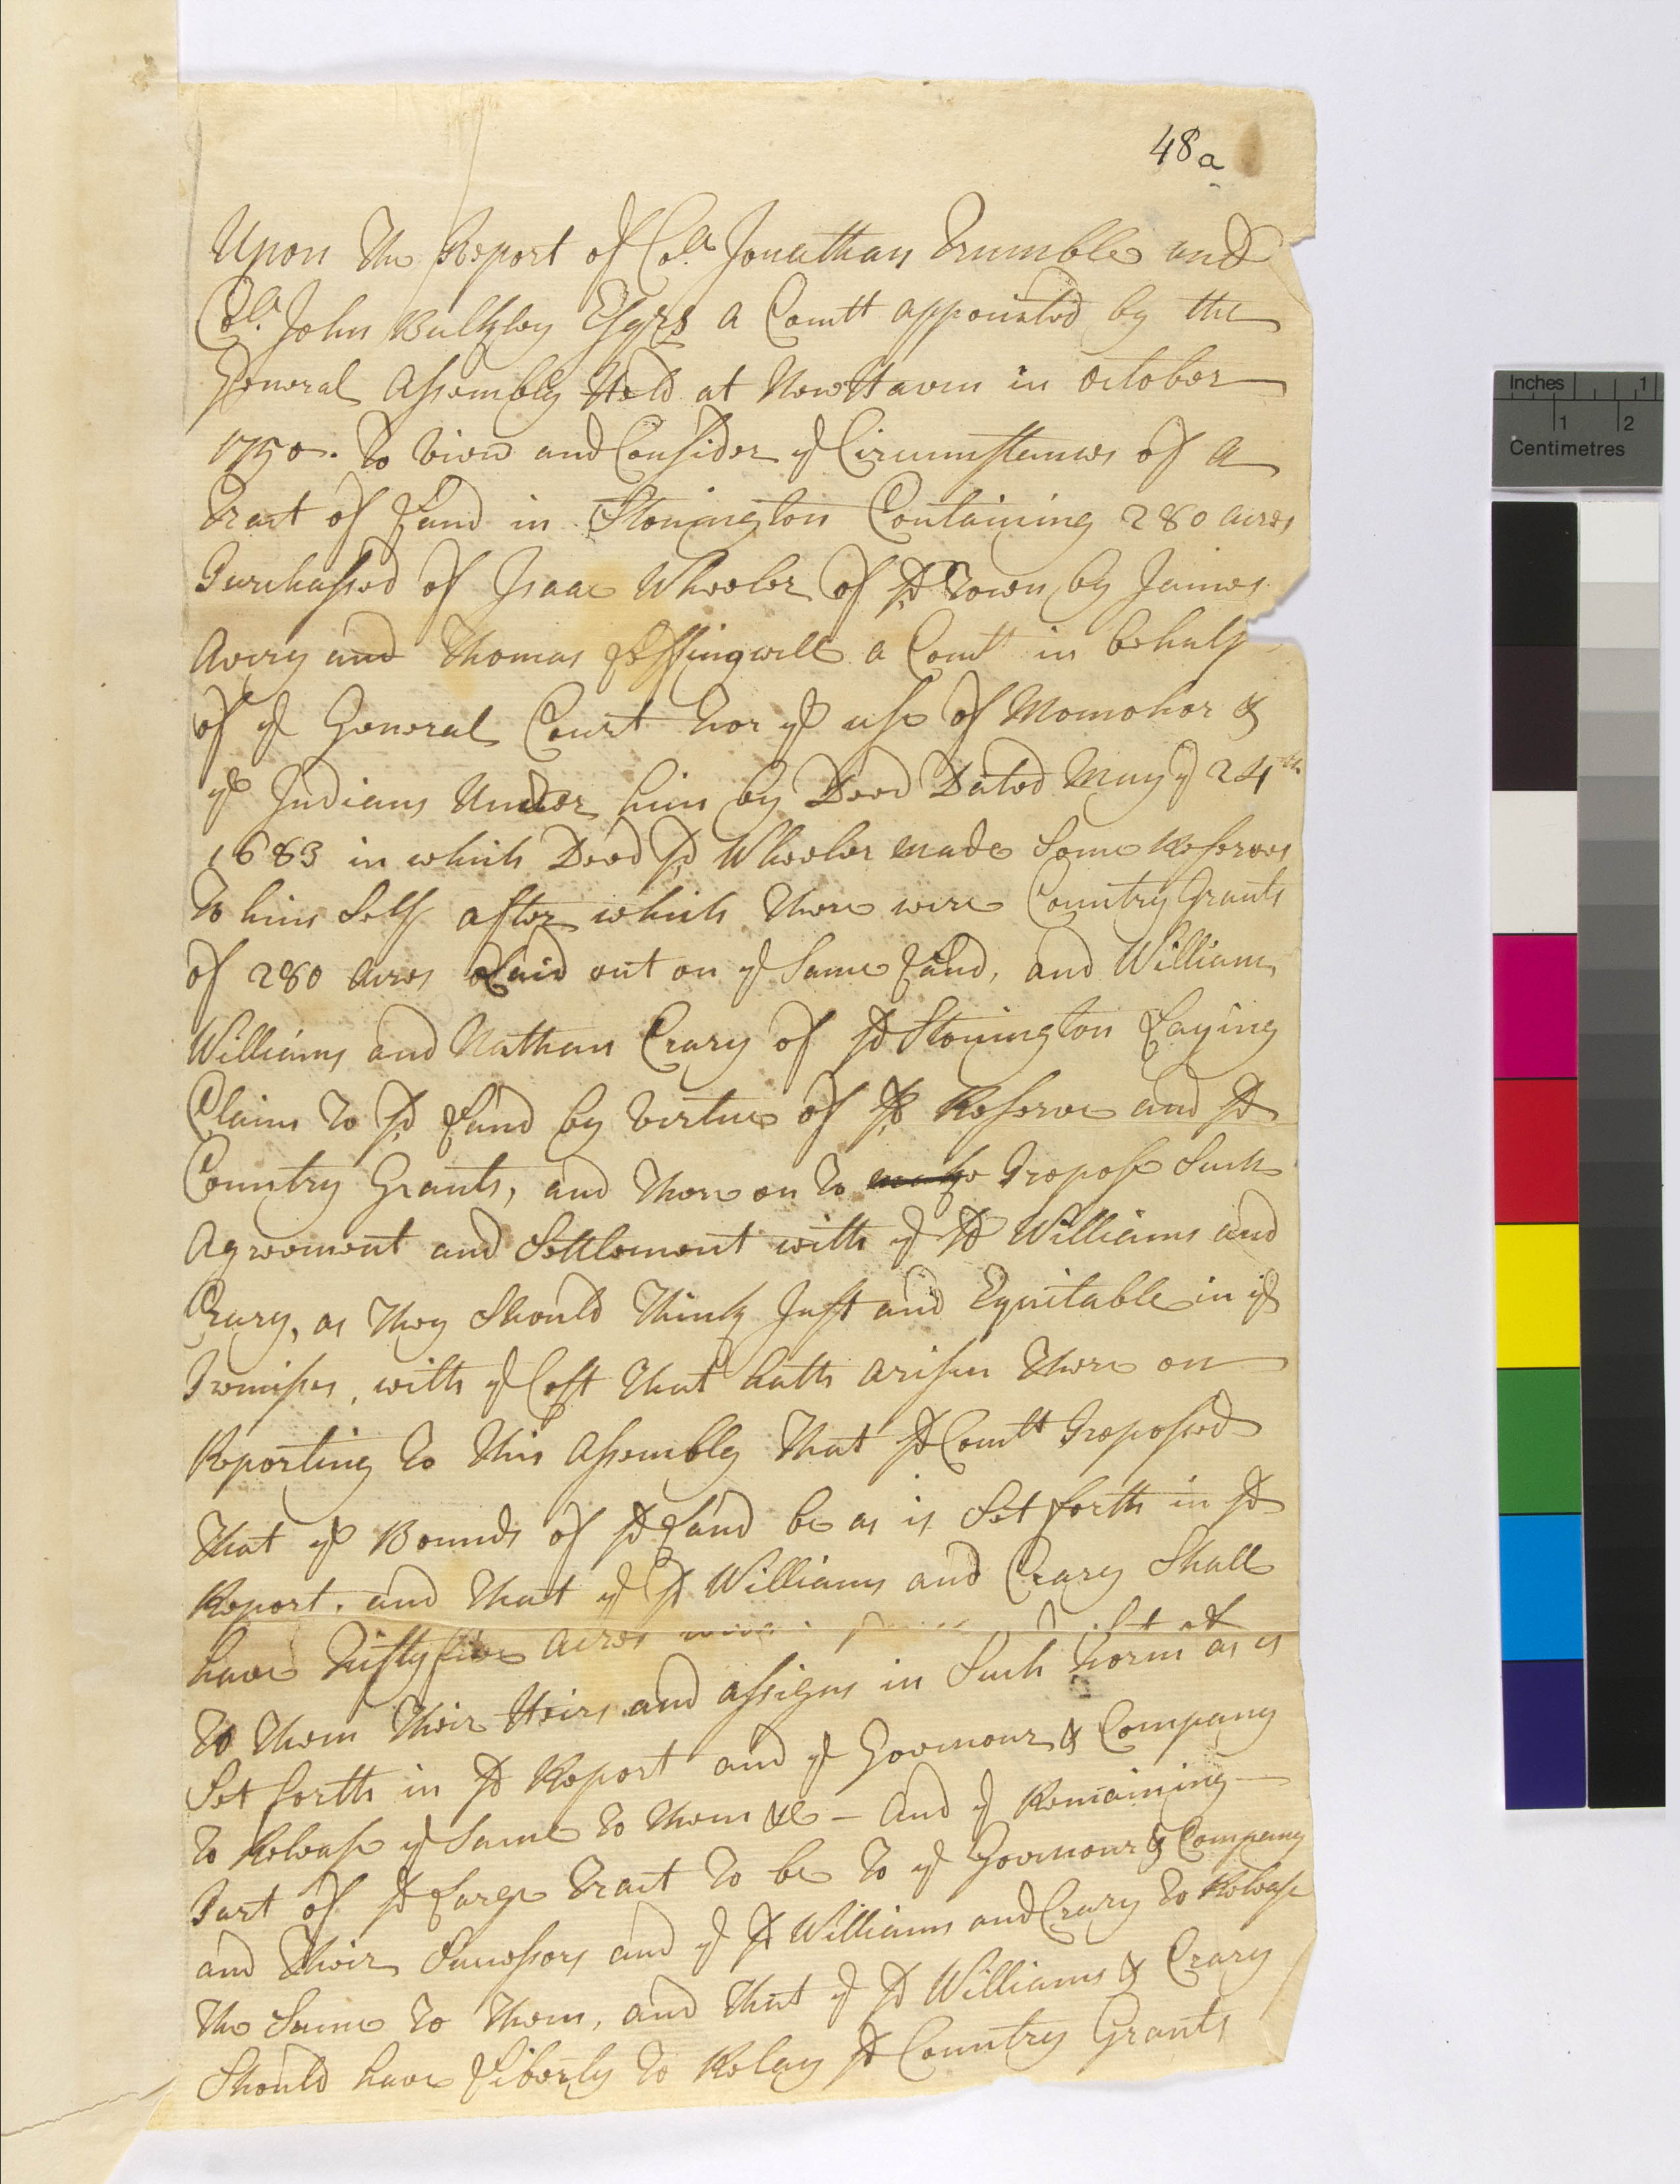 48a
Upon the Report of Col.ll Jonathan Trumble and
Col.ll John Bulkley Esqrs a Comtt appointed by the
General Assembly Held at New Haven in October
1750. to View and Consider ye Circumstances of a
Tract of Land in Stonington Containing 280 acres
Purchassed of Isaac Wheeler of sd Town by James
Avery and Thomas Leffingwell a Comtt in behalf
of ye General Court for ye use of Momohor &
ye Indians Under him by Deed Dated May ye 24th
1683 in which Deed sd Wheeler made Some Reserves
to him Self after which there were Country Grants
of 280 acres Laid out on ye Same Land, and William
Williams and Nathan Crary of sd Stonington Laying
Claim to sd Land by Virtue of sd Reserve and sd
Country Grants, and there on to make Propose Such
Agreement and Settlement with ye sd Williams and
Crary, as they Should think Just and Equitable in ye
Premises, with ye Cost that hath arisen there on
Reporting to this Assembly that sd Comtt Proposed
that ye Bounds of sd Land be as is Set forth in sd
Report. and that ye sd Williams and Crary Shall
have fifty five acres
to them their Heirs and assigns in Such form as is
Set forth in sd Report and ye Governour & Company
to Release ye Same to them &c – and ye Remaining
Part of sd Large Tract to be to ye Governour & Company
and their Successors and ye sd Williams and Crary to Release
the Same to them, and that ye sd Williams & Crary
Should have Liberty to Relay sd Country Grants